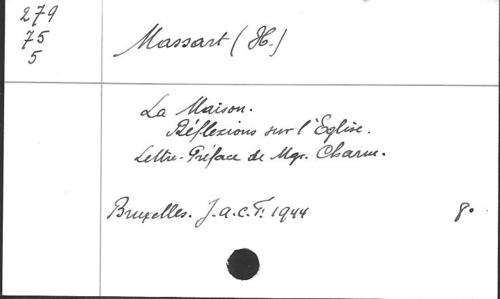 279
75
5
Massart (H.)
La Maison.
Réflexions sur l'Eglise.
Lettre-Préface de Mgr. Charue.
Bruxelles. J.a.c.F. 1944 8°